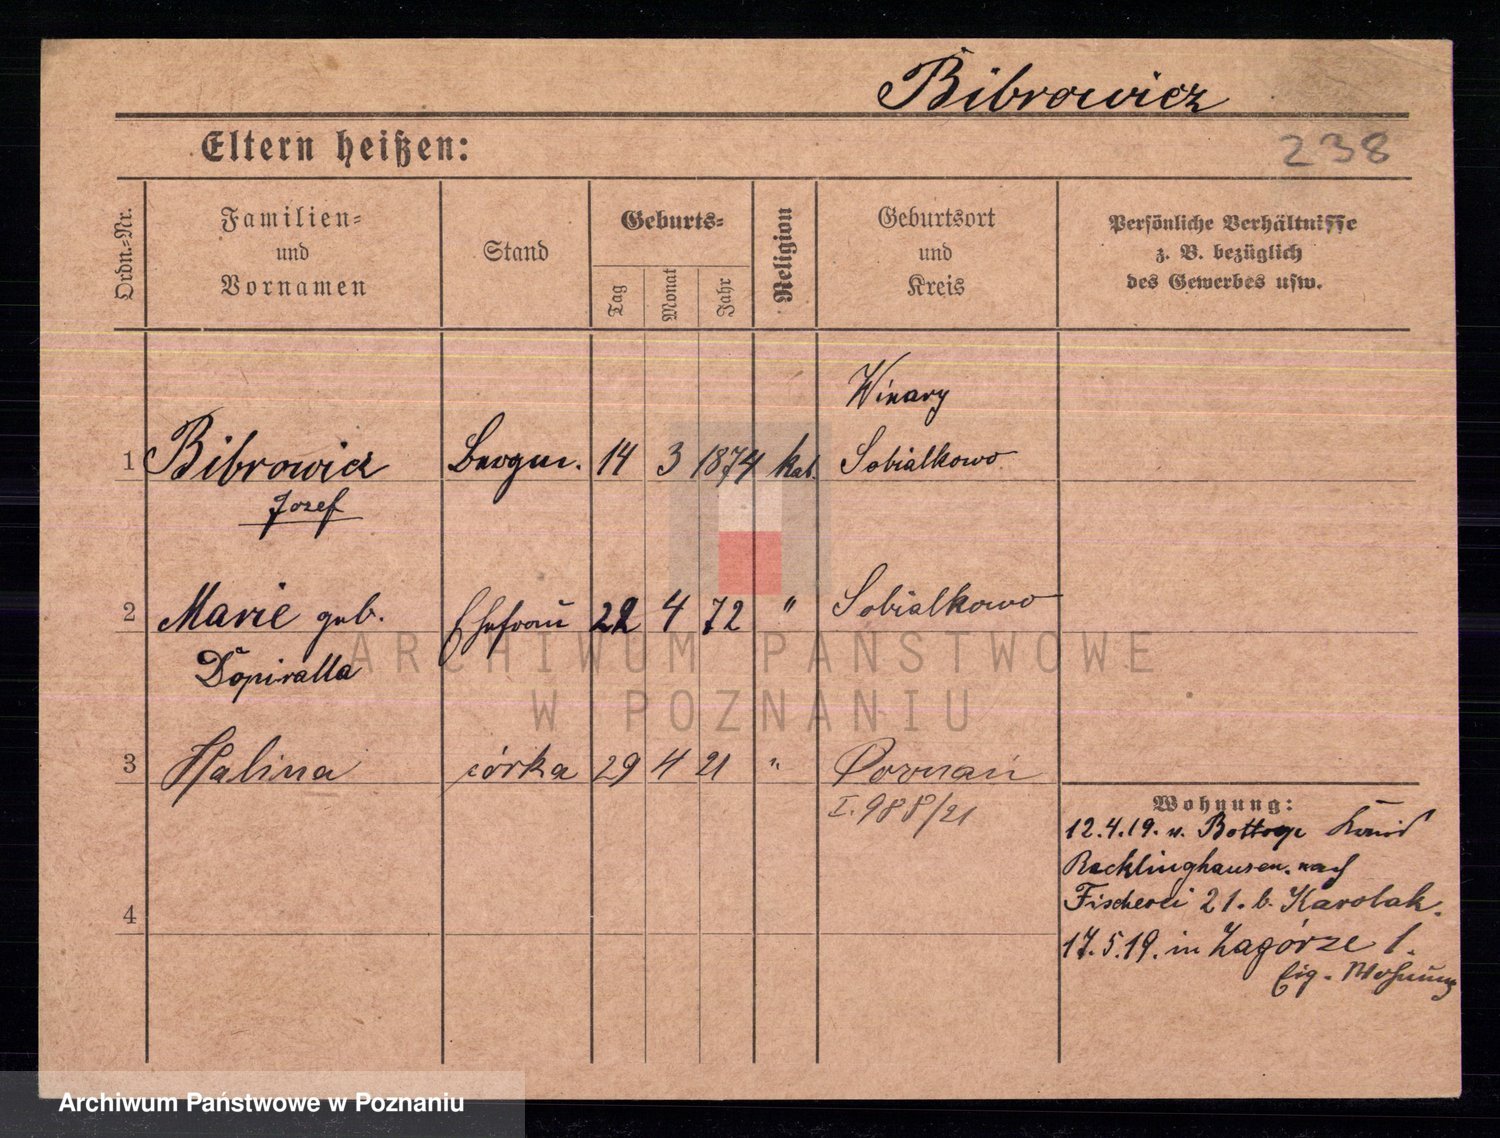 Bibrowicz
Eltern heißen:
238
Ordn.-Nr.
Familien-
und
Vornamen
Stand
Geburts-
Tag
Monat
Jahr
Religion
Geburtsort
und
Kreis
Persönliche Verhältnisse
z. B. bezüglich
des Gewerbes usw.
Winary
1 Bibrowicz Bergm. 14 3 1874 kat. Sobialkowo
Jozef
2 Marie geb. Ehefrau 22 4 72 " Sobialkowo
Dopiralla
3 Halina córka 29 4 21 " Poznań
I. 988/21
4
Wohnung:
12.4.19. v. Bottrop
Recklinghausen. nach
Fischerei 21. b. Karolak.
17.5.19. in Zagórze 1.
Eig. Wohnung
ARCHIWUM PAŃSTWOWE
W POZNANIU
Archiwum Państwowe w Poznaniu